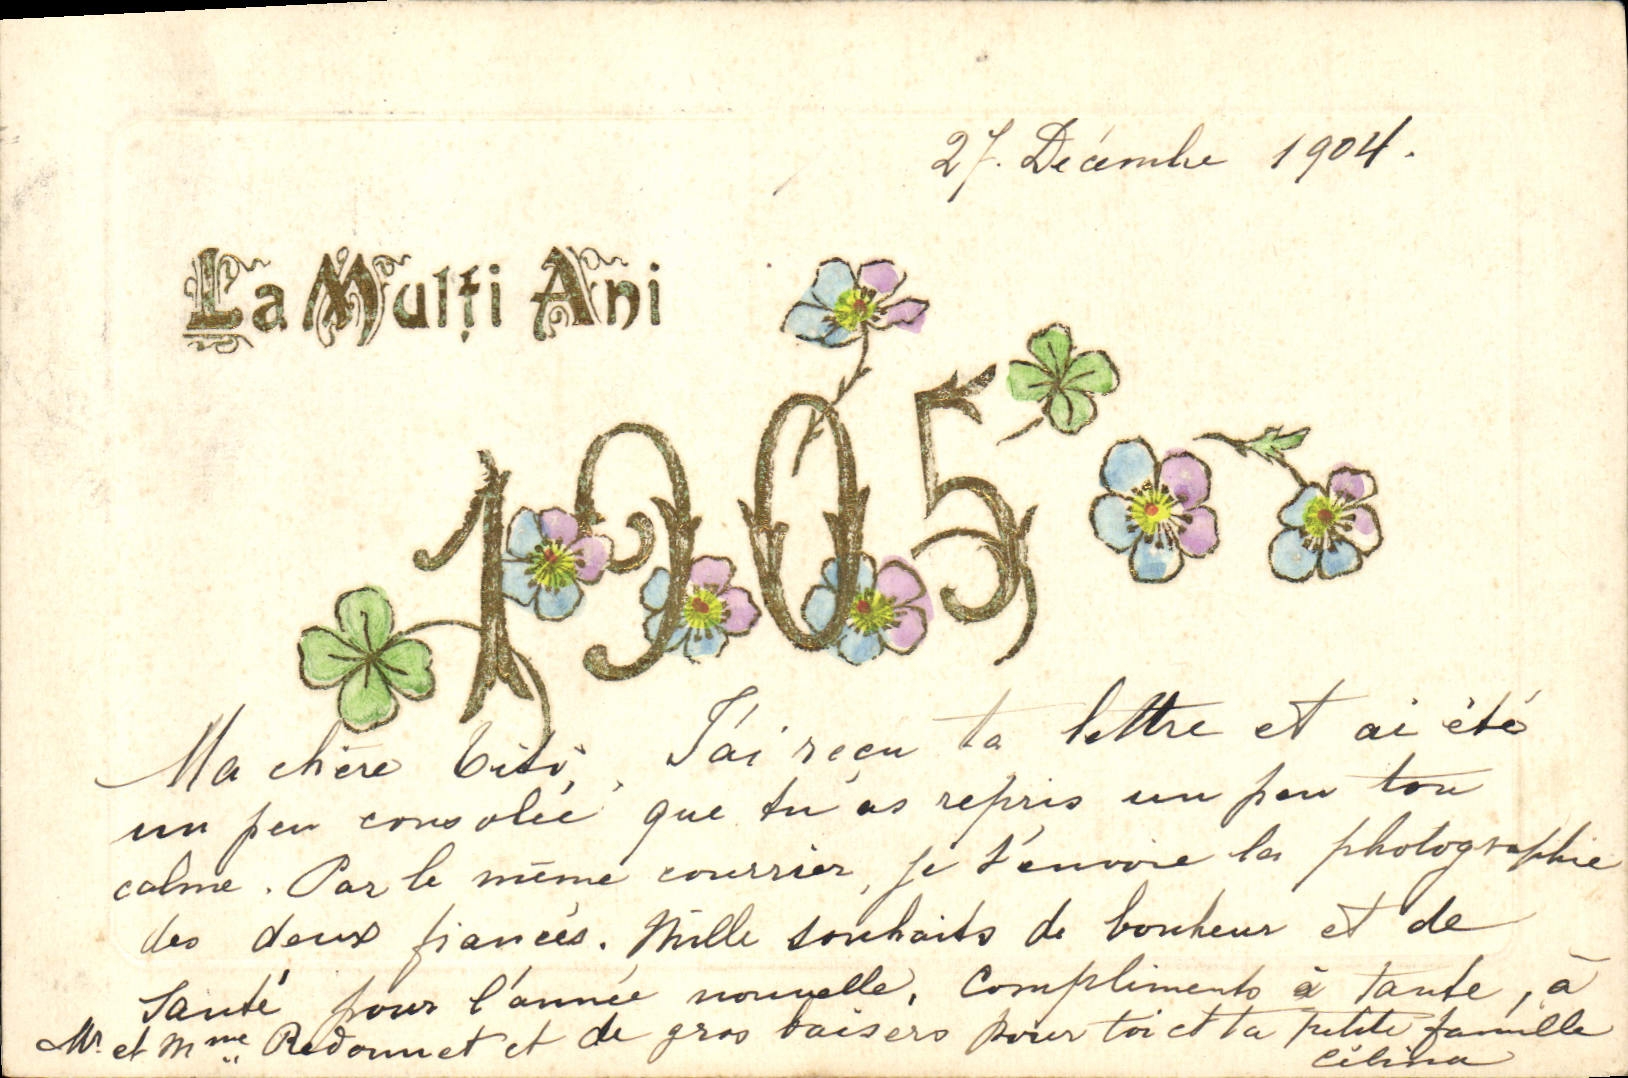 27. Décembre 1904.
La Mulți Ani
1905
Ma chère Titi, J'ai reçu ta lettre et ai été
un peu consolée que tu as repris un peu ton
calme. Par le même courrier, je t'envoie la photographie
des deux fiancés. Mille souhaits de bonheur et de
Santé pour l'année nouvelle. Compliments à tante, à
Mr. et Mme Redonnet et de gros baisers pour toi et ta petite famille
Célina